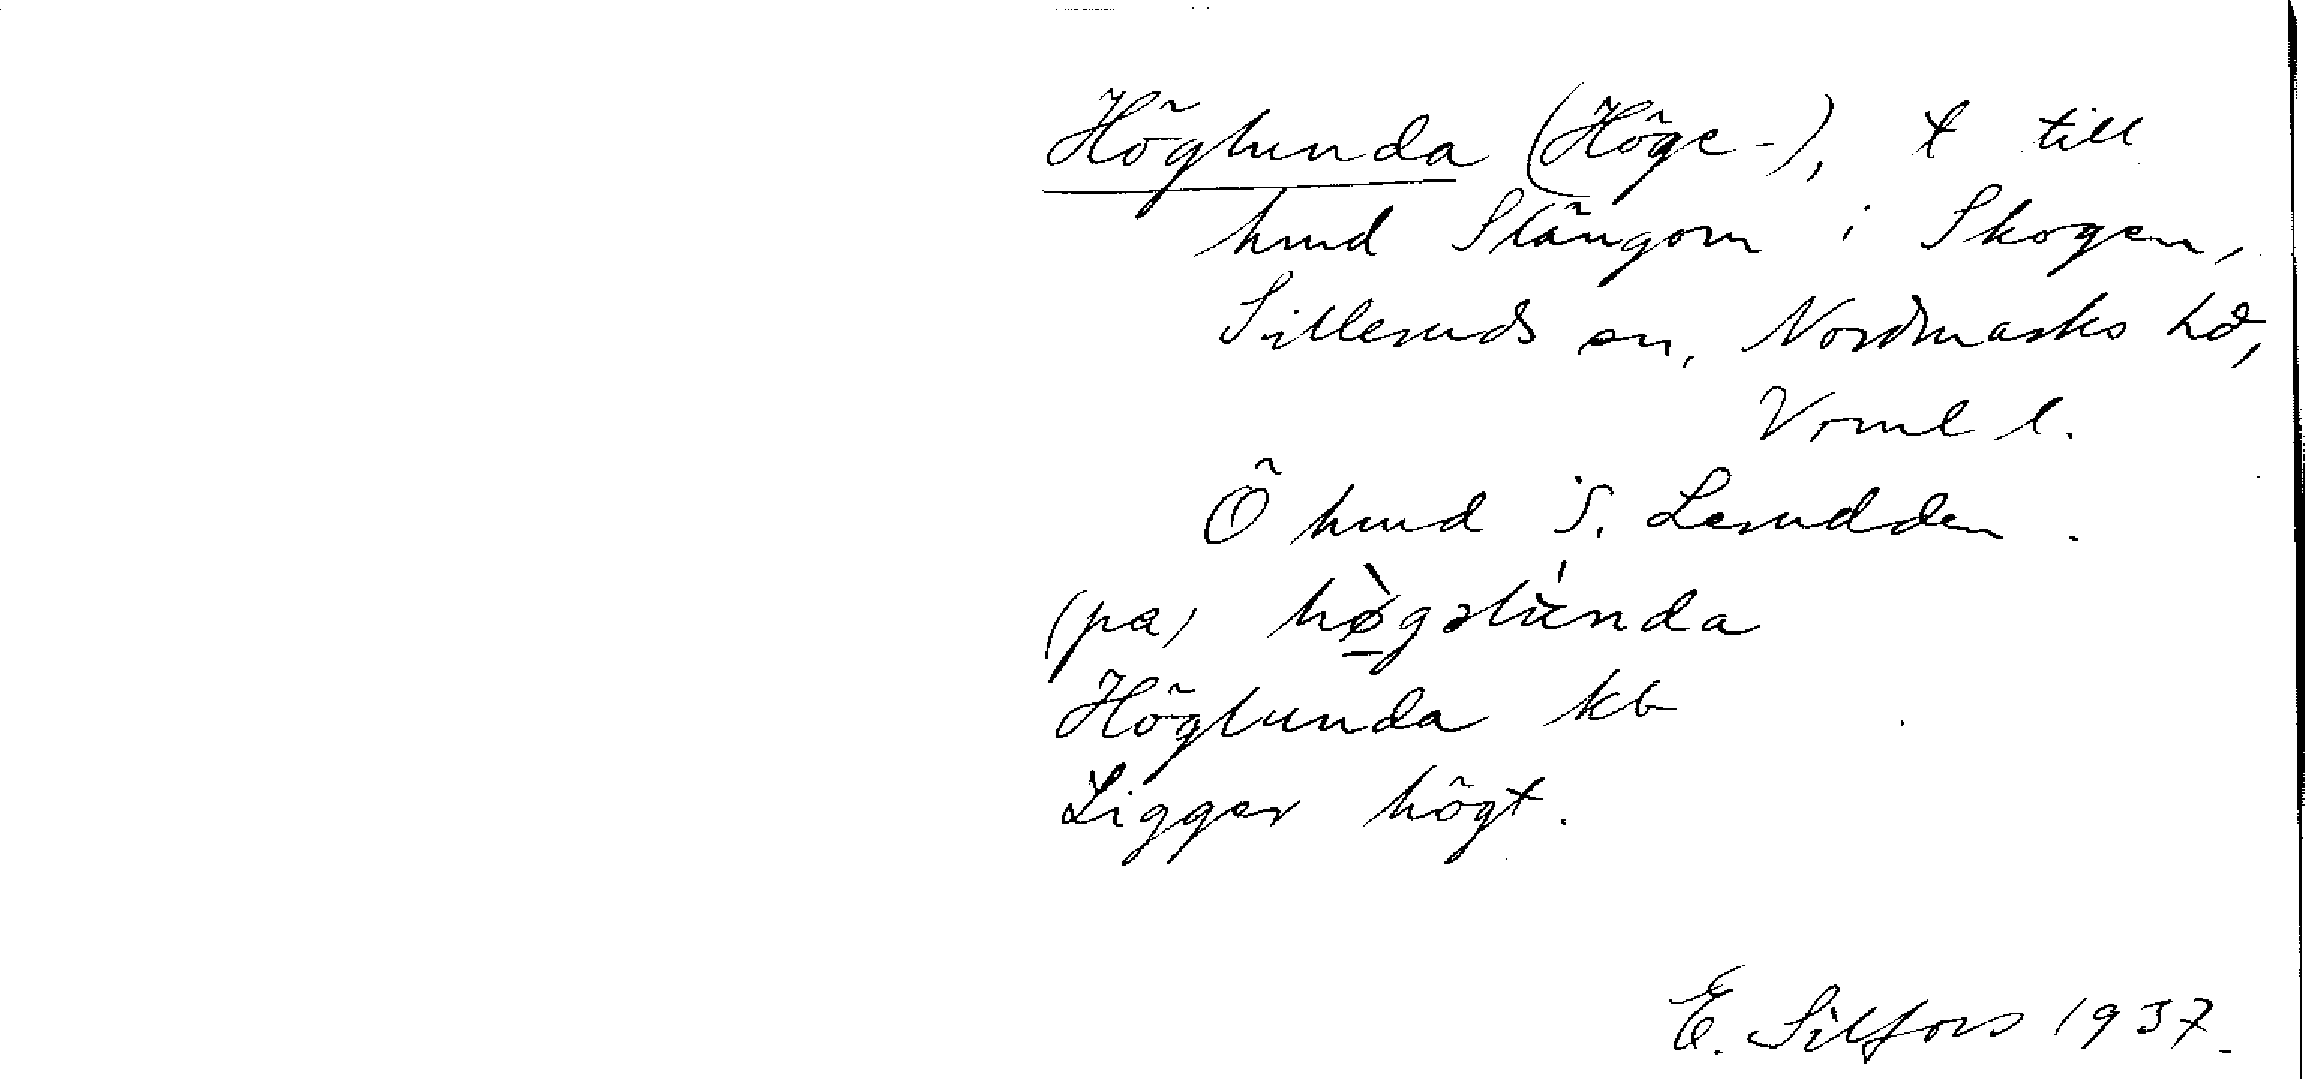 Höglunda (Höge-), t till
hmd Slängom i Skogen,
Silleruds sn, Nordmarks hd,
Vrml l.
Ö hmd S. Lerudden.
(pa) hø̱̀gəlúnda
Höglunda kb
Ligger högt.
E. Silfors 1937.